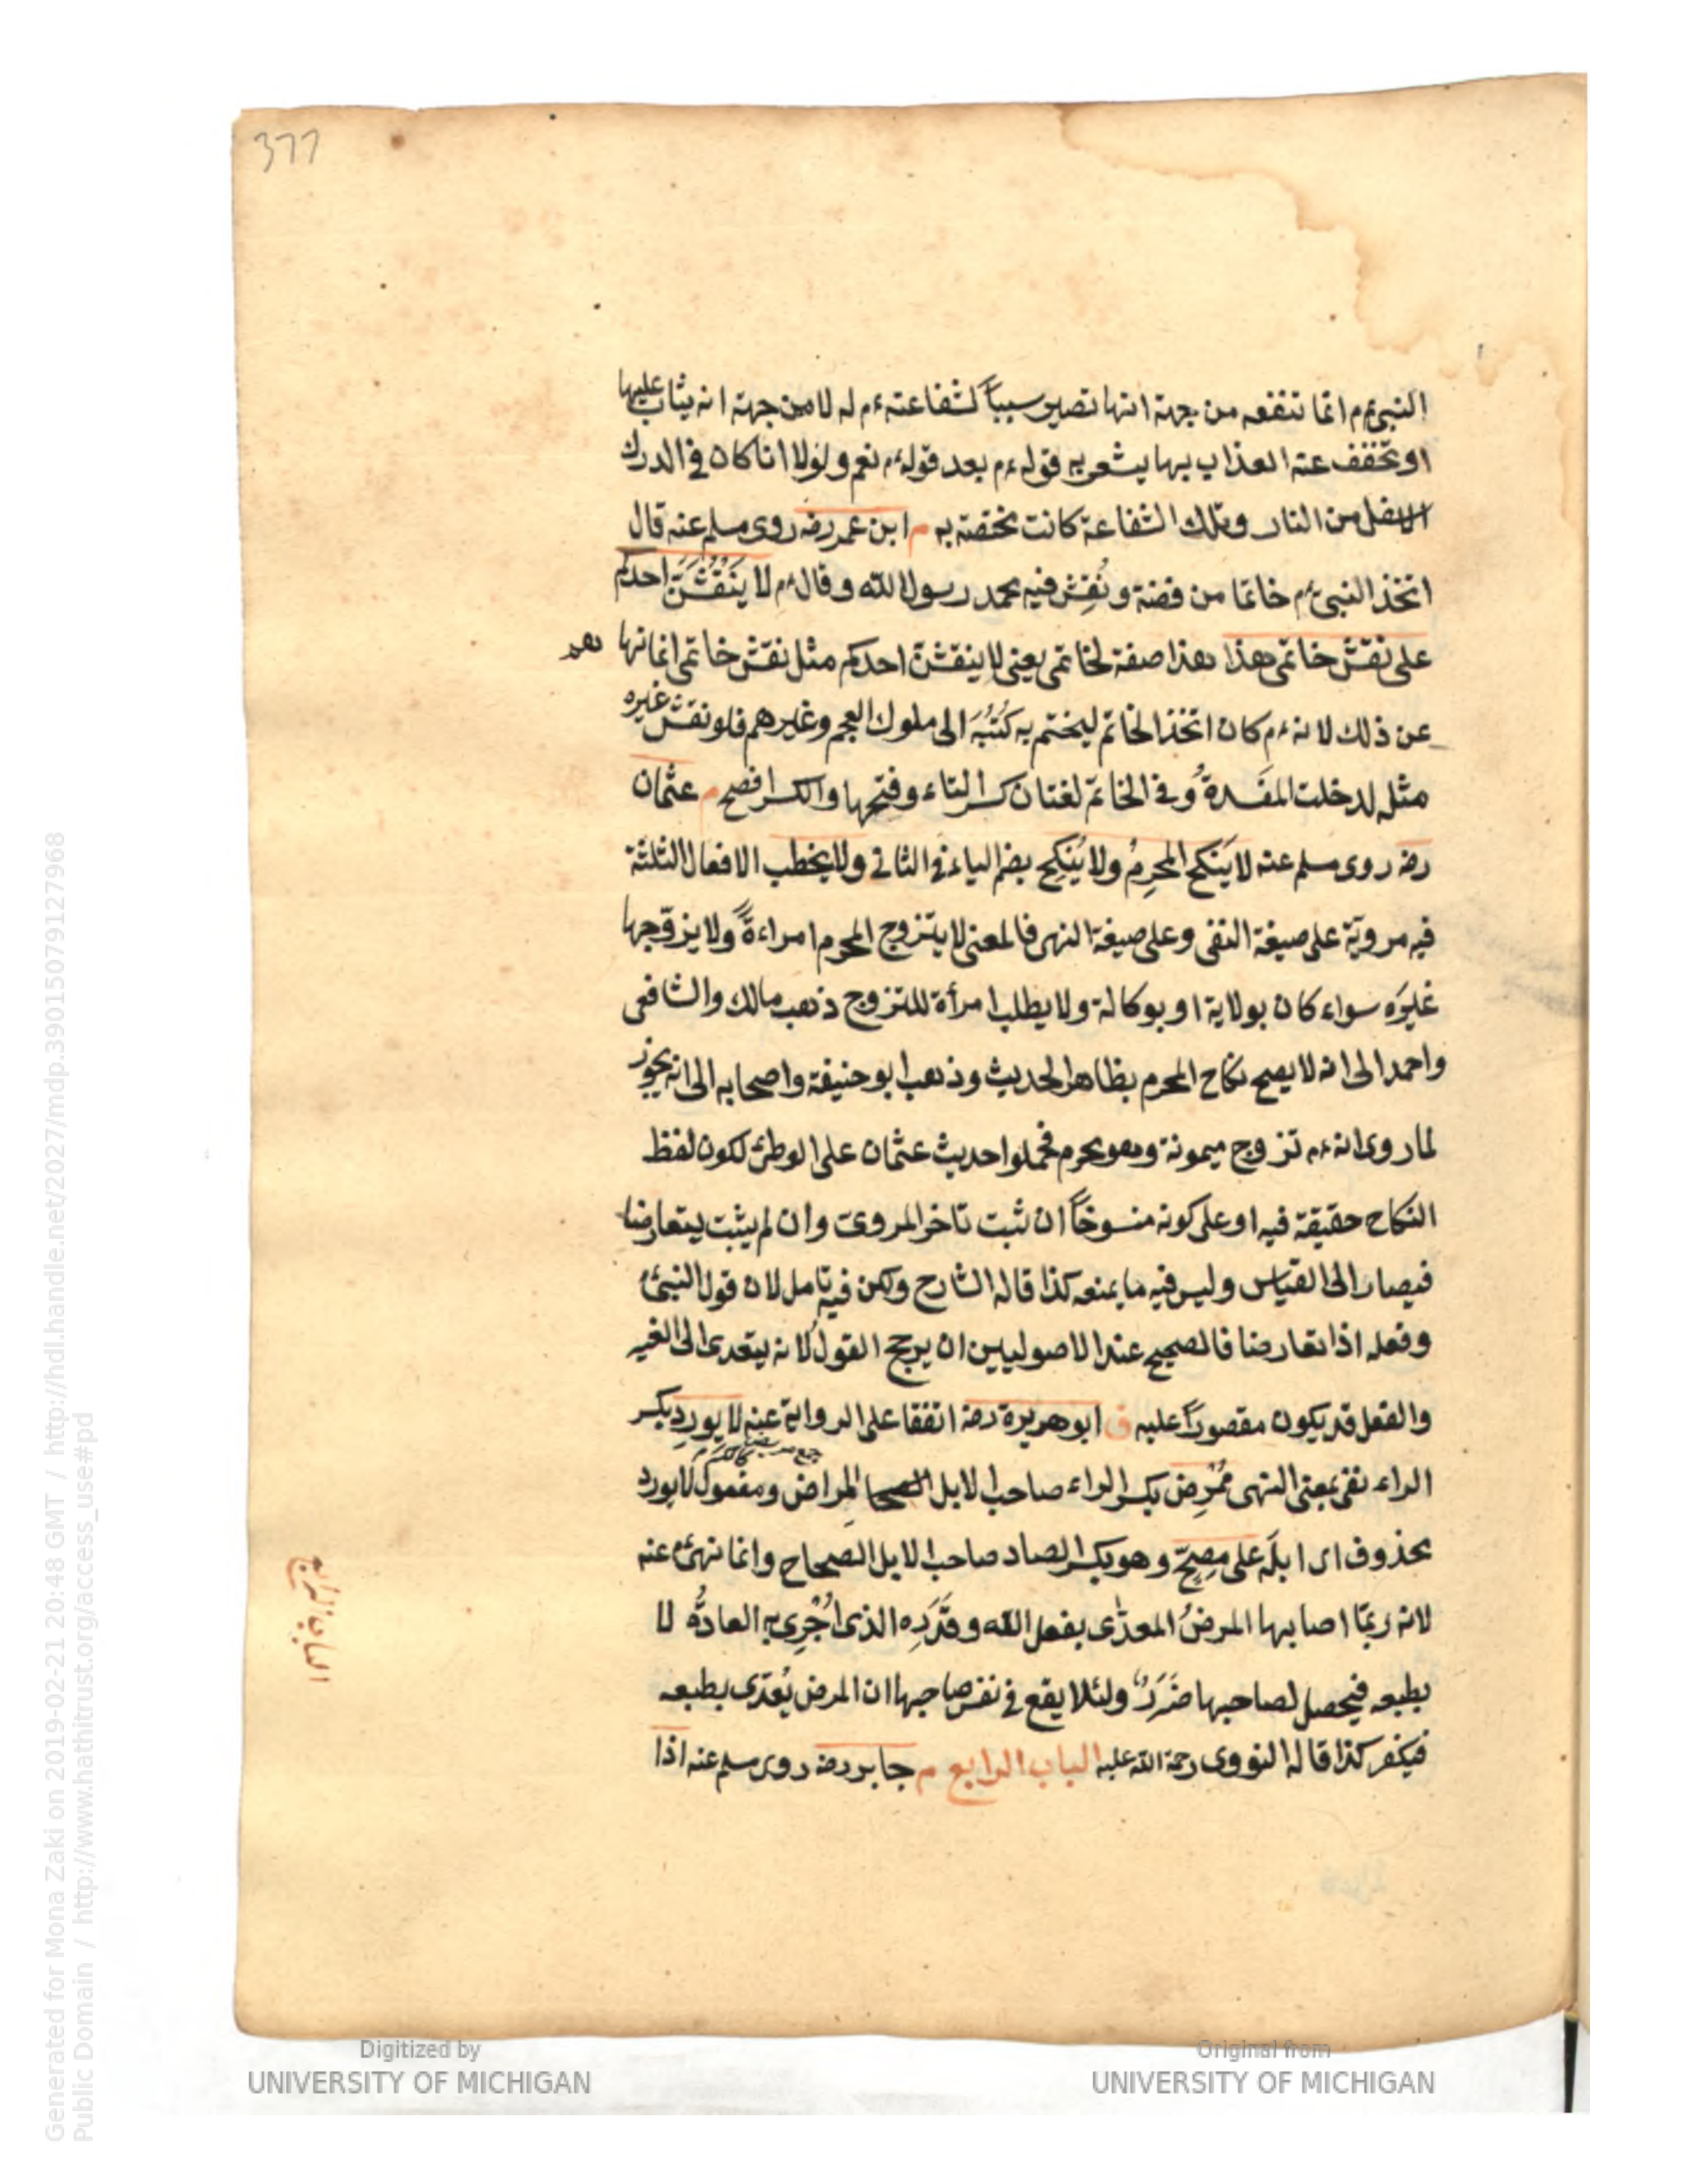 377
النبي عم انما تنفعه من جهة انها تصير سبباً لشفاعته عم له لا من جهة انه يثاب عليها
او تخفف عنه العذاب بها يشعر به قوله عم بعد قوله عم نعم ولولا انا كان في الدرك
الاسفل من النار وتلك الشفاعة كانت مختصة به م ابن عمر رضه روى مسلم عنه قال
اتخذ النبي عم خاتما من فضة ونُقِش فيه محمد رسول الله وقال عم لا يَنْقُشَنَّ احدكم
على نقش خاتمي هذا هذا صفة لخاتمي يعني لا ينقشنّ احدكم مثل نقش خاتمي انما نهاهم
عن ذلك لانه عم كان اتخذ الخاتم ليختم به كُتُبَه الى ملوك العجم وغيرهم فلو نقش غيره
مثله لدخلت المفسدةُ وفي الخاتم لغتان كسر التاء وفتحها والكسر افصح م عثمان
رضه روى مسلم عنه لا يَنكح المحرِمُ ولا يُنكِح بضم الياء في الثاني ولا يخطب الافعال الثلثة
فيه مروية على صيغة النفي وعلى صيغة النهى فالمعنى لا يتزوج المحرم امراءةً ولا يزوّجها
غيرَه سواء كان بولاية او بوكالة ولا يطلب امرأة للتزوج ذهب مالك والشافعى
واحمد الى انه لا يصح نكاح المحرم بظاهر الحديث وذهب ابو حنيفة واصحابه الى انه يجوز
لما روى انه عم تزوج ميمونة وهو محرم فحملوا حديث عثمان على الوطئ لكون لفظ
النكاح حقيقة فيه او على كونه منسوخاً ان ثبت تاخر المروى وان لم يثبت يتعارضا
فيصار الى القياس وليس فيه ما يمنعه كذا قاله الشارح ولكن فيه تامل لان قول النبي عم
وفعله اذا تعارضا فالصحيح عند الاصوليين ان يرجح القول لانه يتعدى الى الغير
والفعل قد يكون مقصوراً عليه ق ابو هريرة رضه اتفقا على الرواية عنه لا يورِد بكسر
الراء نفى بمعنى النهى مُمْرِض بكسر الراء صاحب الابل المِراض ومفعول لا يورد
محذوف اى ابلَه على مصِحّ وهو بكسر الصاد صاحب الابل الصحاح وانما نهى عم عنه
لانه ربّما اصابها المرضُ المعدّى بفعل الله وقَدَرِه الذى اُجْرِى به العادةُ لا
بطبعه فيحصل لصاحبها ضَرَرٌ ولئلا يقع في نفس صاحبها ان المرض يُعدّى بطبعه
فيكفر كذا قاله النووى رحمة الله عليه الباب الرابع م جابر رضه روى مسلم عنه اذا
الباب الرابع
Digitized by
UNIVERSITY OF MICHIGAN
Original from
UNIVERSITY OF MICHIGAN
Generated for Mona Zaki on 2019-02-21 20:48 GMT / http://hdl.handle.net/2027/mdp.39015079127968
Public Domain / http://www.hathitrust.org/access_use#pd